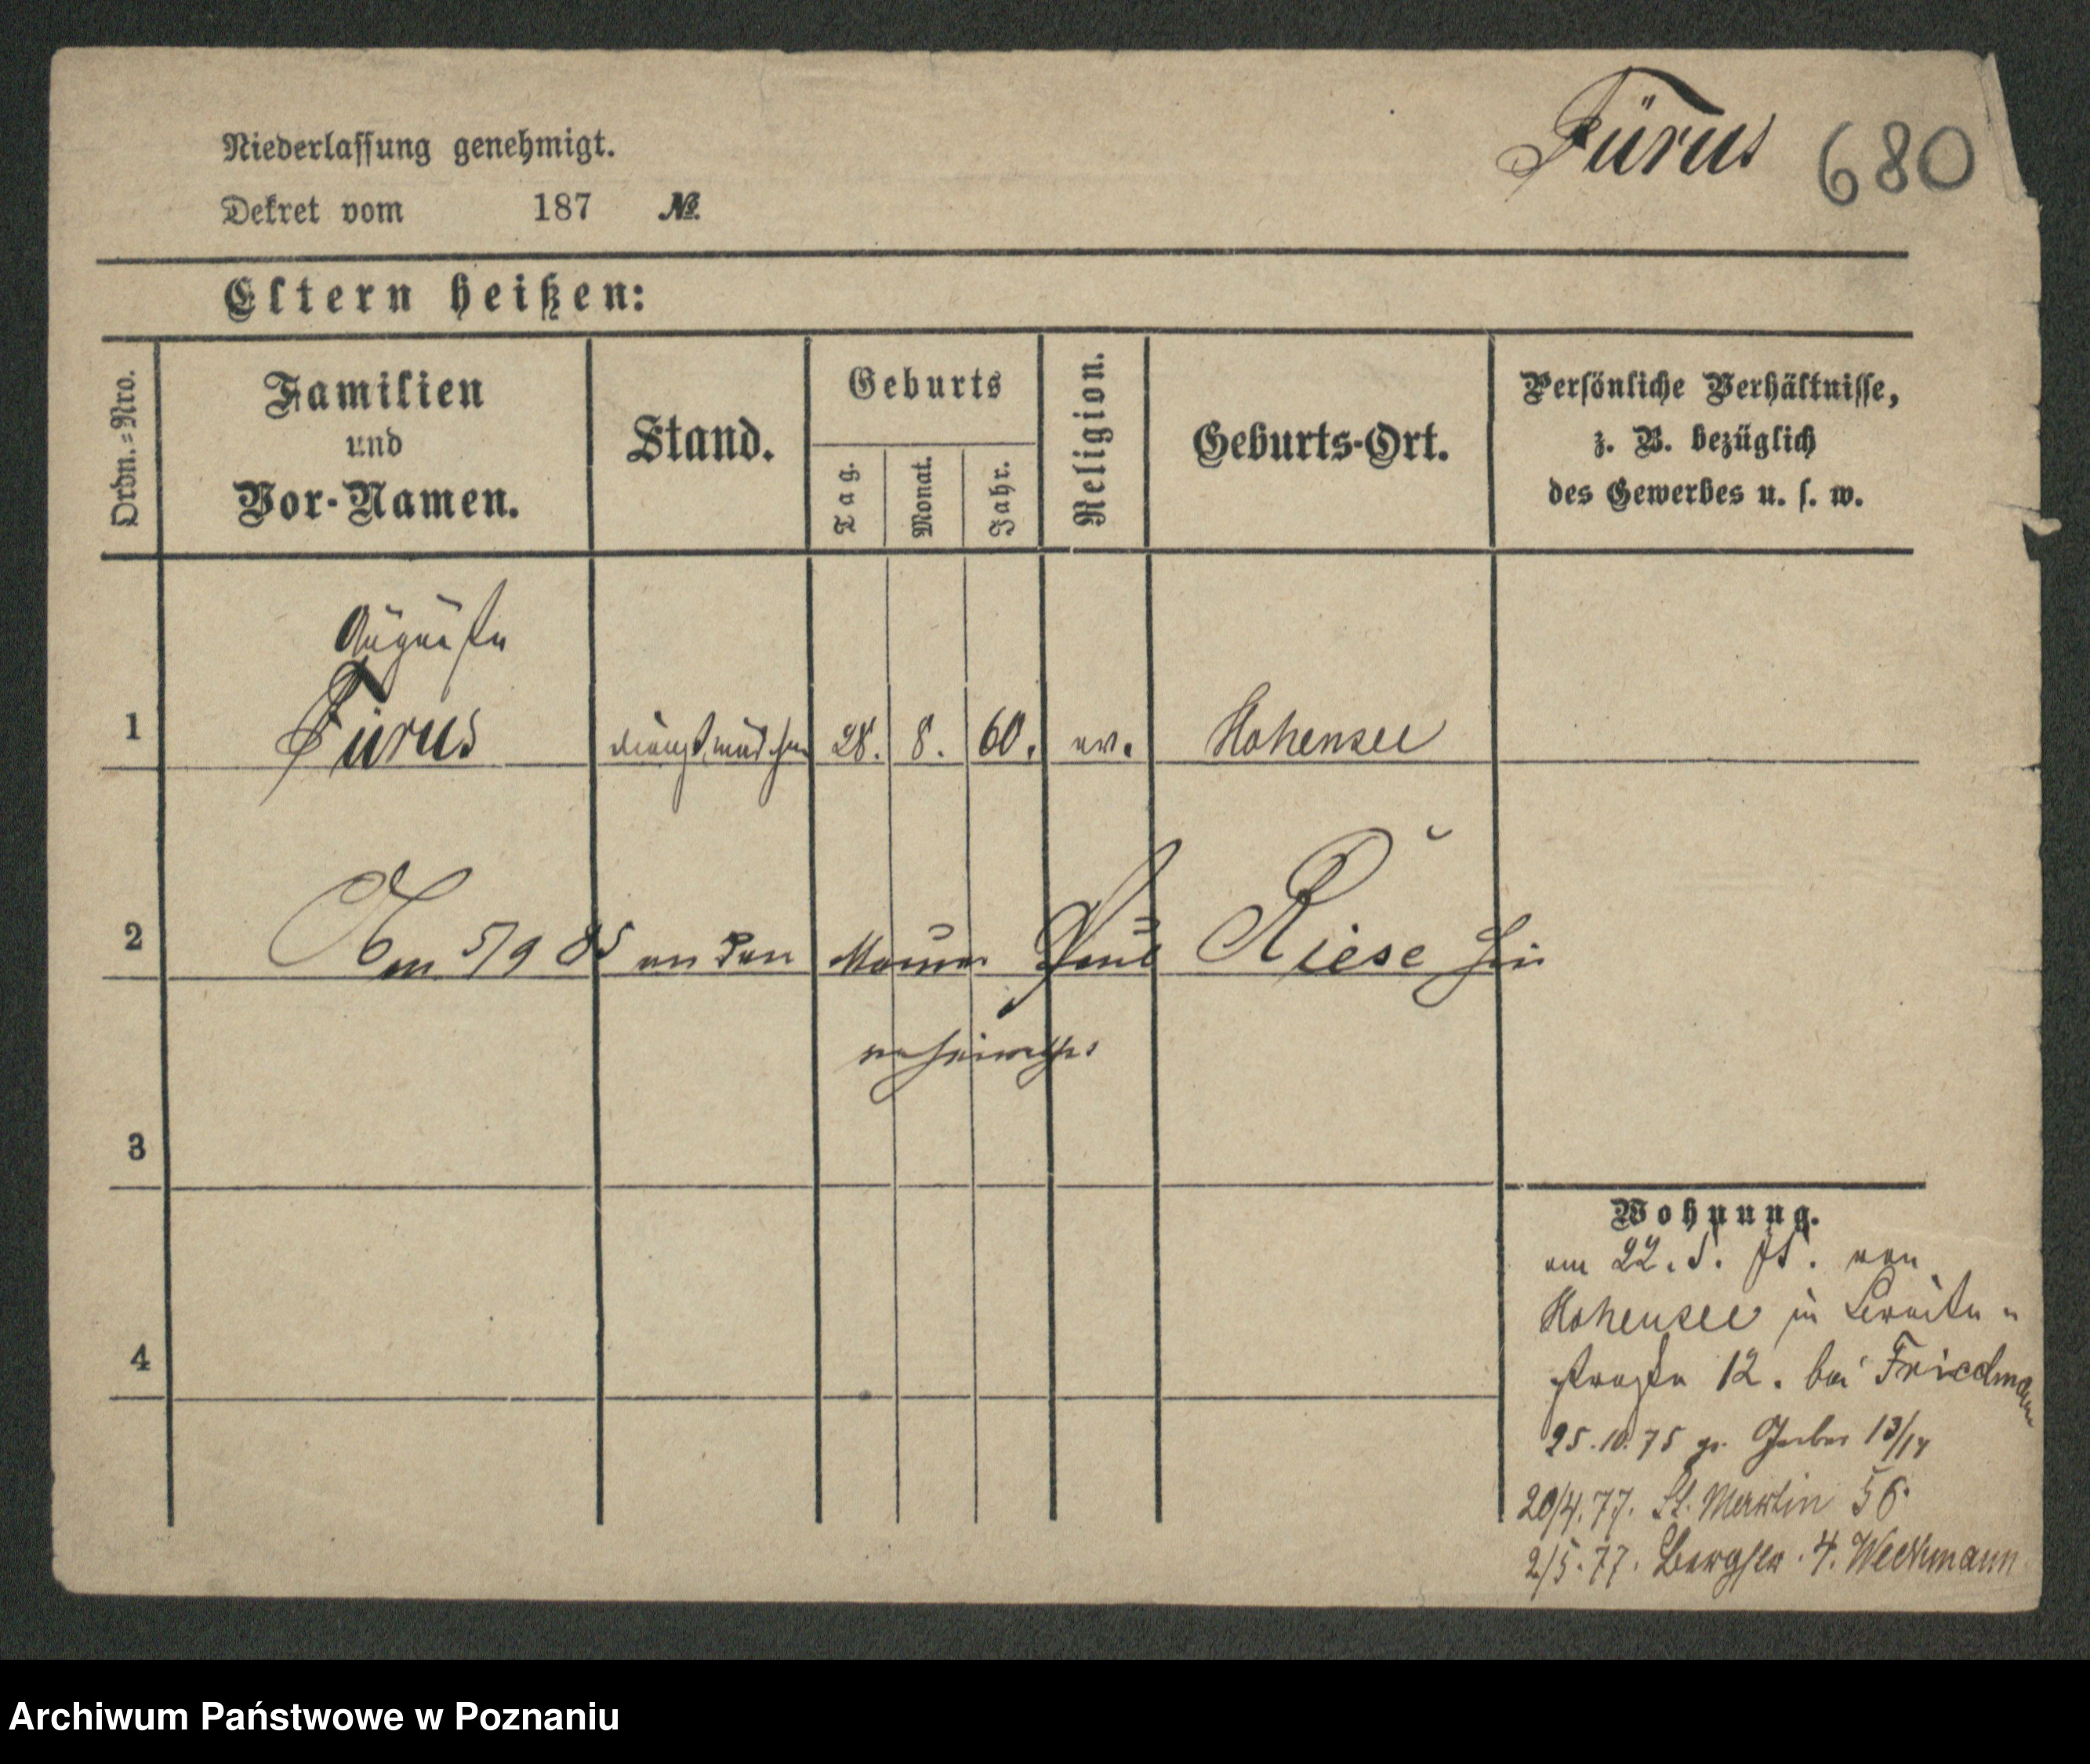 Fürus 680
Niederlassung genehmigt.
Dekret vom 187 №.
Eltern heißen:
Ordn.=Nro.
Familien
und
Vor-Namen.
Stand.
Geburts
Tag. Monat. Jahr.
Religion.
Geburts-Ort.
Persönliche Verhältnisse,
z. B. bezüglich
des Gewerbes u. s. w.
Auguste
1 Fürus Dienstmädchen 28. 8. 60. ev. Hohensee
2 Am 5/9 85 an den Maurer Paul Riese hier
verheirathet
3
4
Wohnung.
am 22. 5. 75. von
Hohensee in Breite-
straße 12. bei Friedmann
25.10.75 gr. Gerber 13/14
20/4.77. St. Martin 56.
2/5.77. Bergstr. 4. Weckmann
Archiwum Państwowe w Poznaniu